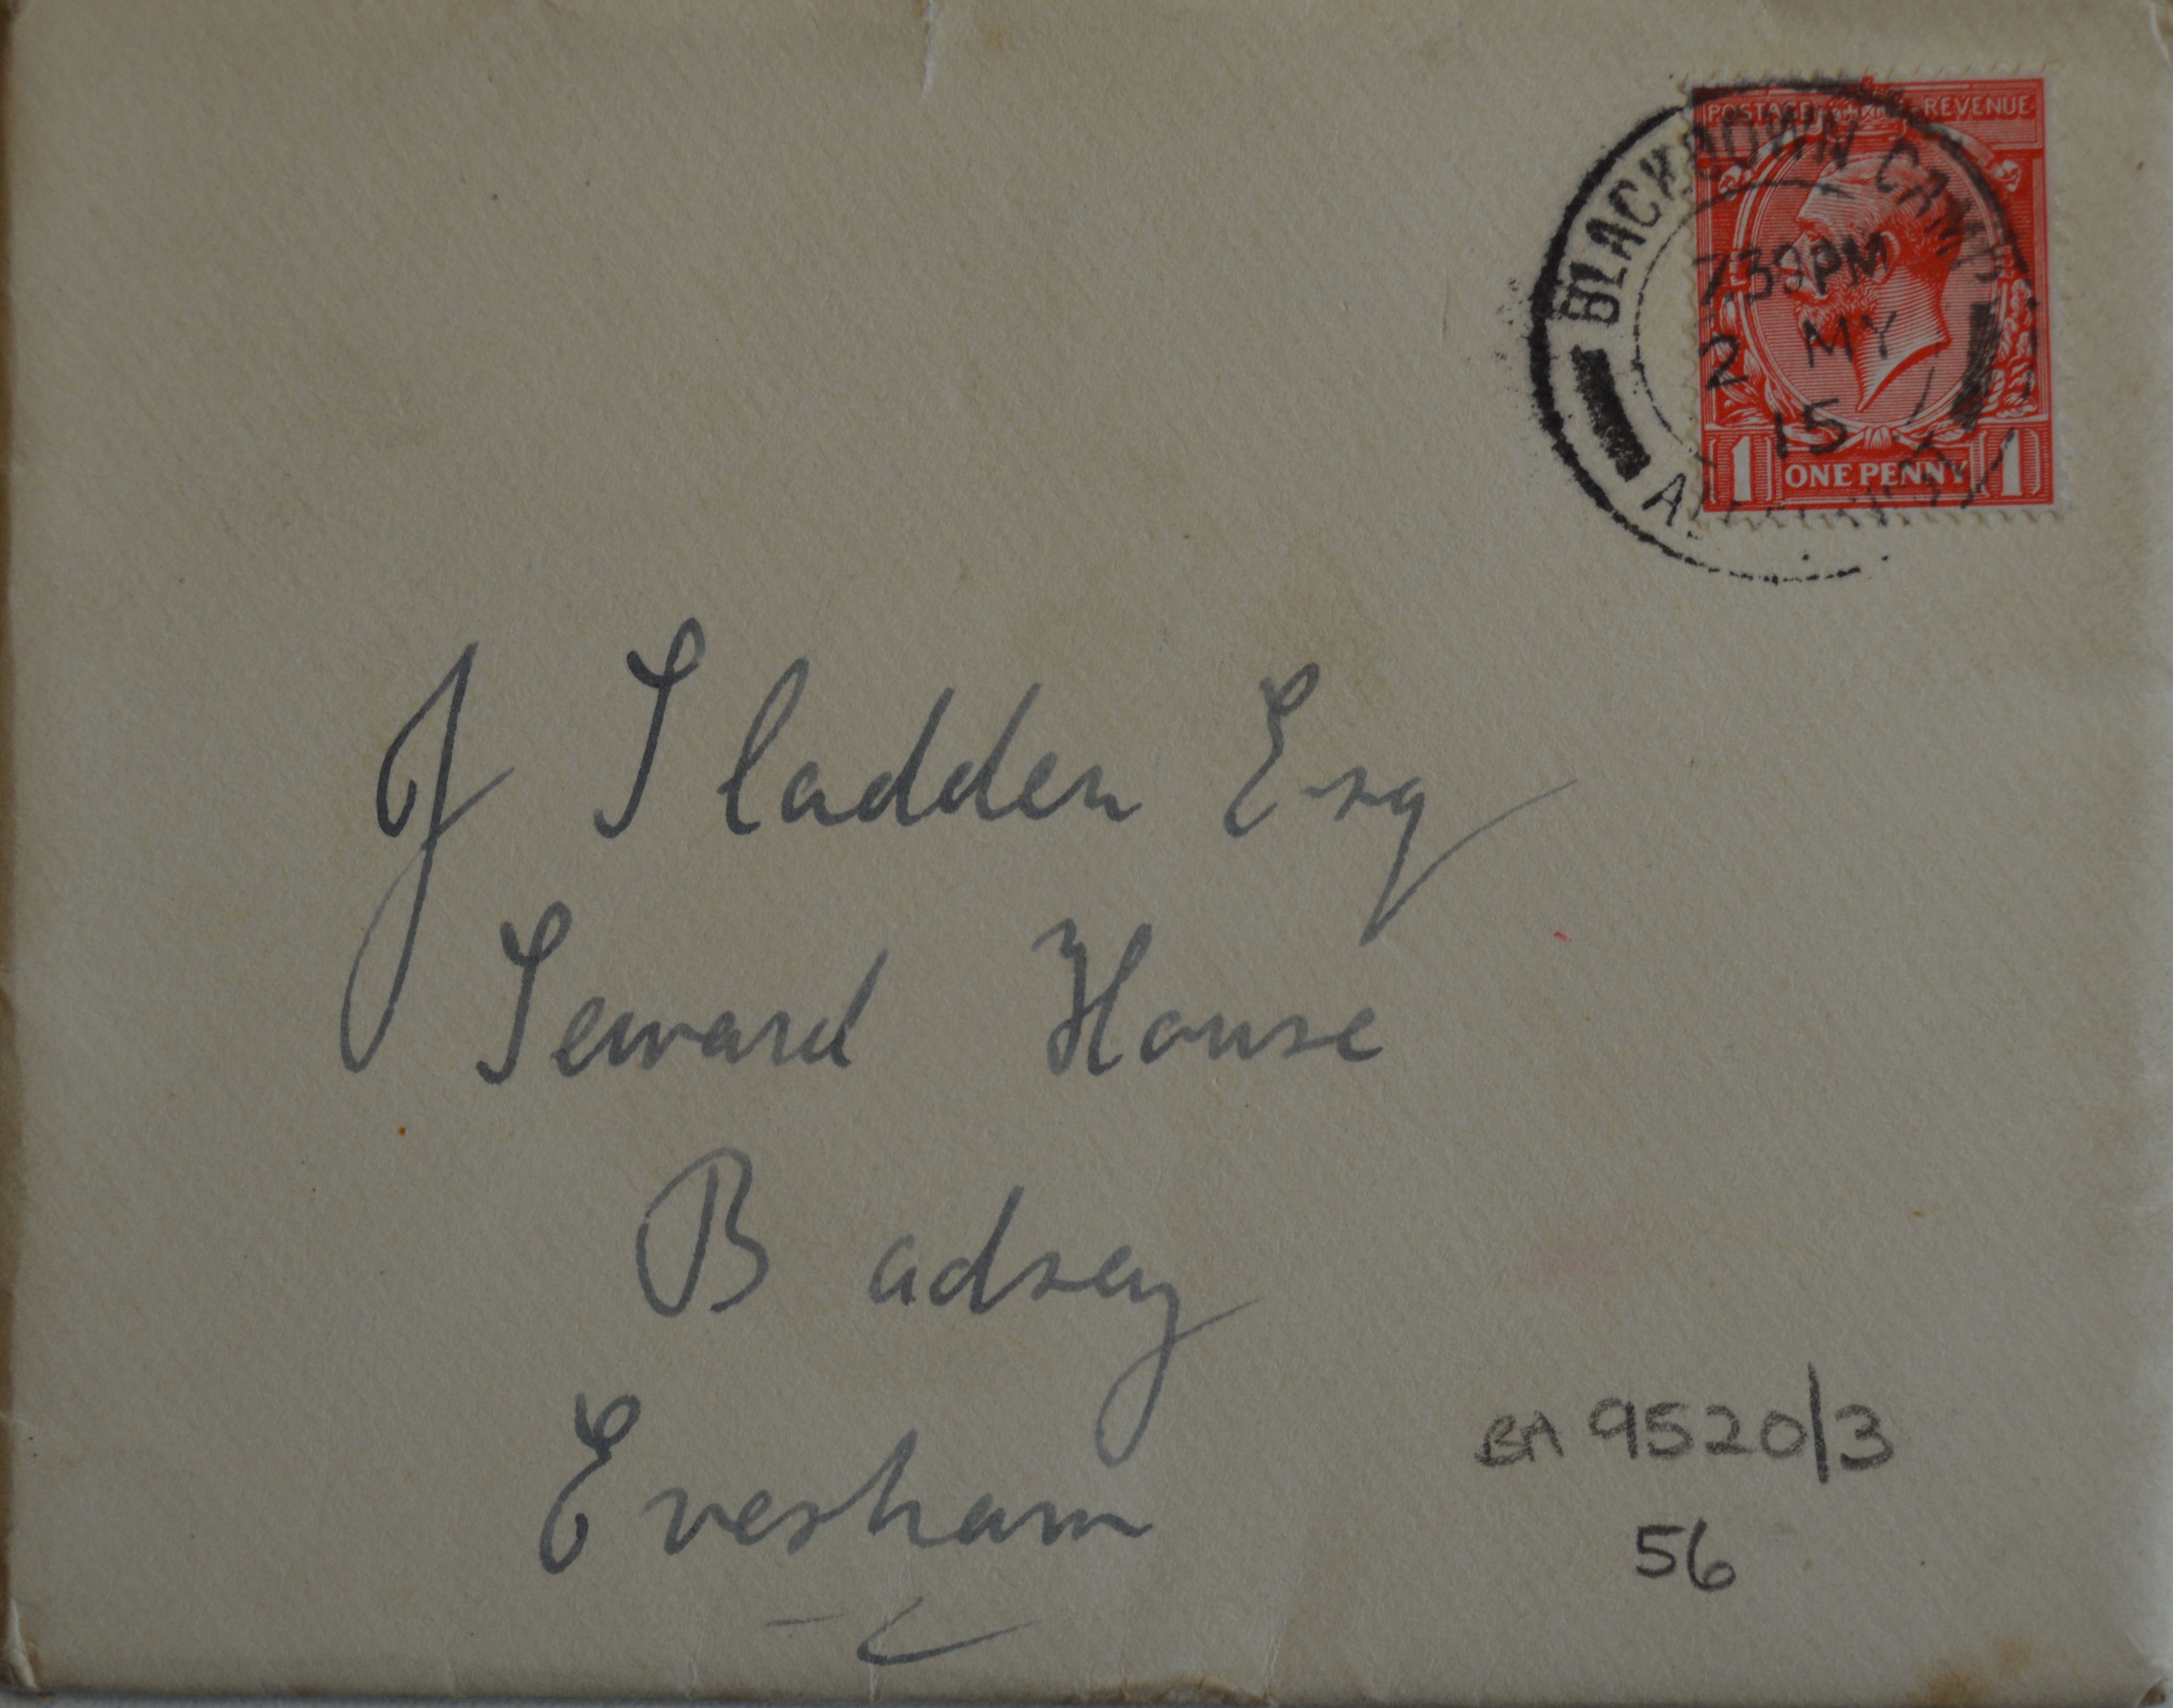 POSTAGE REVENUE
BLACKDOWN CAMP
7.30PM
2 MY
15
1 ONE PENNY 1
J Sladden Esq
Seward House
Badsey
Evesham
BA 9520/3
56